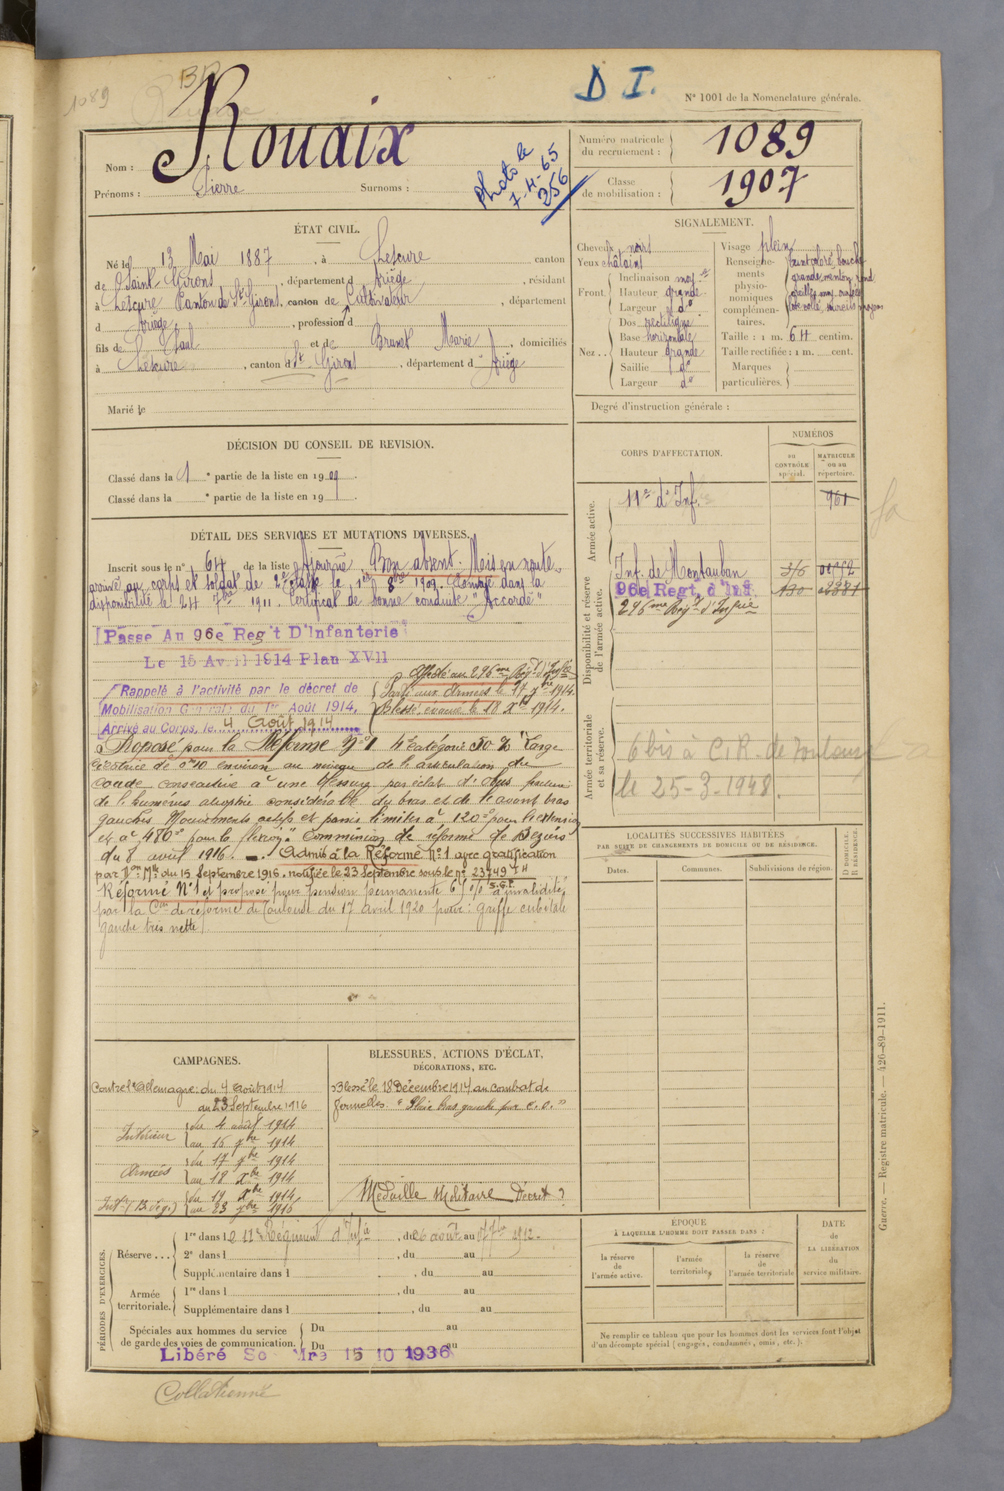 1089
D I.
N° 1001 de la Nomenclature générale.
Nom : Rouaix
Prénoms : Pierre Surnoms :
Photo le
7-4-65
256
Numéro matricule
du recrutement : 1089
Classe
de mobilisation : 1907
ÉTAT CIVIL.
Né le 13 Mai 1887, à Lescure canton
de Saint-Girons, département d Ariège, résidant
à Lescure Canton de St Girons, canton de, département
d Ariège, profession d Cultivateur
fils de Paul et de Brunet Marie, domiciliés
à Lescure, canton d St Girons, département d Ariège
Marié le
SIGNALEMENT.
Cheveux noirs
Yeux châtains
Front Inclinaison moy.ne
Hauteur grande
Largeur do
Nez Dos rectiligne
Base horizontale
Hauteur grande
Saillie do
Largeur do
Visage plein
Renseignements physionomiques complémentaires.
Taille : 1 m. 64 centim.
Taille rectifiée : 1 m. cent.
Marques
particulières.
Degré d'instruction générale :
DÉCISION DU CONSEIL DE REVISION.
Classé dans la 1 e partie de la liste en 1909
Classé dans la e partie de la liste en 19
DÉTAIL DES SERVICES ET MUTATIONS DIVERSES.
Inscrit sous le n° 64 de la liste Ajourné Bon absent. Mois en route
arrivé au corps et soldat de 2e classe le 1er 8bre 1909. dans la
disponibilité le 24 7bre 1911. Certificat de bonne conduite "Accordé"
Passé Au 96e Regt D'Infanterie
Le 15 Avril 1914 Plan XVII
Affecté au 296me Régt d'Infie
Rappelé à l'activité par le décret de
Mobilisation Générale du 1er Août 1914,
Arrivé au Corps, le 4 Août 1914
Parti aux Armées le 17 9bre 1914.
Blessé, évacué le 18 Xbre 1914.
Proposé pour la Réforme N° 1 4e catégorie 50 % "Large
cicatrice de 0m10 environ au niveau de l'articulation du
coude consécutive à une blessure par éclat d'obus fracture
de l'humérus atrophie considérable du bras et de l'avant bras
gauches Mouvements actifs et passifs limités à 120° pour l'extension
et à 480° pour la flexion" Commission de réforme de Béziers
du 8 avril 1916. — Admis à la Réforme N° 1 avec gratification
par Don Mle du 15 Septembre 1916, notifiée le 23 Septembre sous le n° 23749
S.G.P.
Réformé N° 1 et proposé pour pension permanente 65 o/o d'invalidité,
par la Con de réforme de Toulouse du 17 avril 1920 pour : griffe cubitale
gauche très nette
CORPS D'AFFECTATION.
NUMÉROS
au
CONTRÔLE
spécial.
MATRICULE
ou au
répertoire.
Armée active.
11e d'Inf. 961
Disponibilité et réserve
de l'armée active.
Inf. de Montauban
96e Regt. d'Inf.
296me Régt d'Infrie
Armée territoriale
et sa réserve.
6 bis à C.R. de Toulouse
le 25-3-1948.
LOCALITÉS SUCCESSIVES HABITÉES
PAR SUITE DE CHANGEMENTS DE DOMICILE OU DE RÉSIDENCE.
D DOMICILE.
R RÉSIDENCE.
Dates. Communes. Subdivisions de région.
CAMPAGNES.
Contre l'Allemagne: du 4 Août 1914
au 23 Septembre 1916
Intérieur du 4 août 1914
au 16 9bre 1914
Armées du 17 9bre 1914
au 18 Xbre 1914
du 19 Xbre 1914
au 23 7bre 1916
BLESSURES, ACTIONS D'ÉCLAT,
DÉCORATIONS, ETC.
Blessé le 18 Décembre 1914 au combat de
Vermelles. "Plaie bras gauche par e. o."
Médaille Militaire Décret
PÉRIODES D'EXERCICES.
Réserve ... 1re dans le 11e Régiment d'Infie, du 26 août au 1912.
2e dans l, du au
Supplémentaire dans l, du au
Armée
territoriale. 1re dans l, du au
Supplémentaire dans l, du au
Spéciales aux hommes du service
de garde des voies de communication. Du au
Du au
Libéré Sce Mre 15 10 1936
ÉPOQUE
À LAQUELLE L'HOMME DOIT PASSER DANS :
la réserve
de
l'armée active.
l'armée
territoriale.
la réserve
de
l'armée territoriale
DATE
de
LA LIBÉRATION
du
service militaire.
Ne remplir ce tableau que pour les hommes dont les services font l'objet
d'un décompte spécial (engagés, condamnés, omis, etc.).
Guerre. — Registre matricule. — 426-89-1911.
Collationné